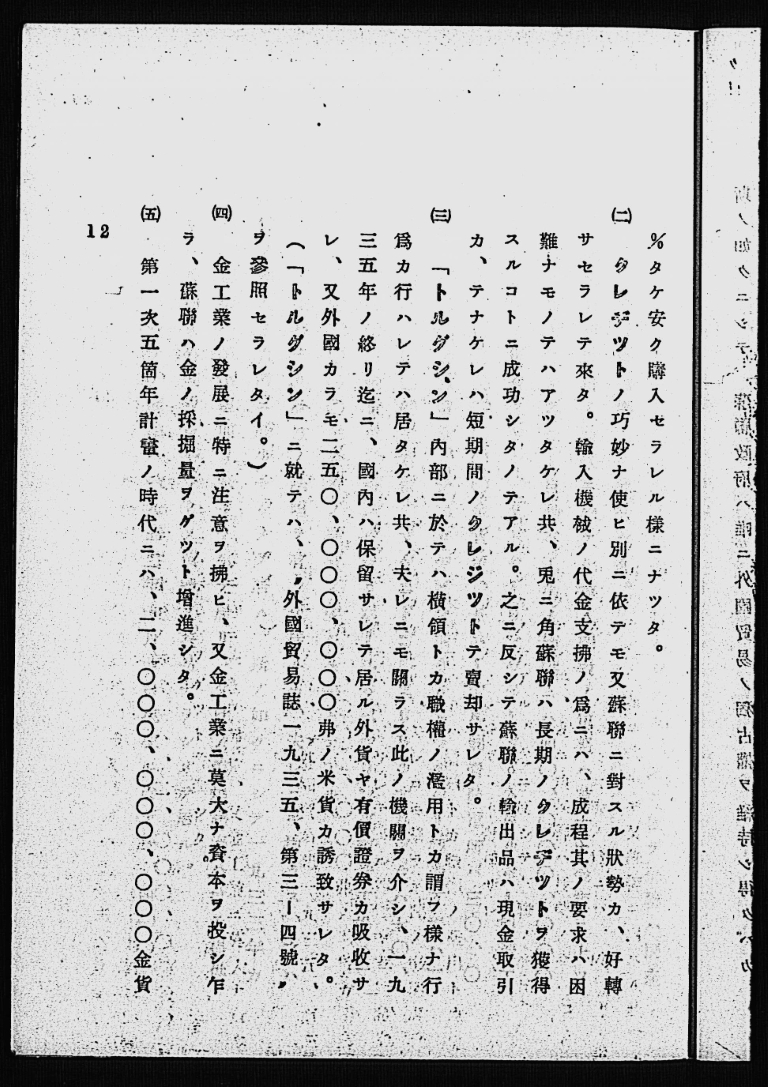 %タケ安ク購入セラレル様ニナツタ。
㈡ クレヂツトノ巧妙ナ使ヒ別ニ依テモ又蘇聯ニ對スル狀勢カ、好轉
サセラレテ來タ。輸入機械ノ代金支拂ノ爲ニハ、成程其ノ要求ハ困
難ナモノテハアツタケレ共、兎ニ角蘇聯ハ長期ノクレヂツトヲ獲得
スルコトニ成功シタノテアル。之ニ反シテ蘇聯ノ輸出品ハ現金取引
カ、テナケレハ短期間ノクレジツトテ賣却サレタ。
㈢ 「トルグシン」內部ニ於テハ橫領トカ職權ノ濫用トカ謂フ樣ナ行
爲カ行ハレテハ居タケレ共、夫レニモ關ラス此ノ機關ヲ介シ、一九
三五年ノ終リ迄ニ、國內ハ保留サレテ居ル外貨ヤ有價證券カ吸收サ
レ、又外國カラモ二五〇、〇〇〇、〇〇〇弗ノ米貨カ誘致サレタ。
(「トルグシン」ニ就テハ、〃外國貿易誌一九三五、第三ー四號〃
ヲ參照セラレタイ。)
㈣ 金工業ノ發展ニ特ニ注意ヲ拂ヒ、又金工業ニ莫大ナ資本ヲ投シ乍
ラ、蘇聯ハ金ノ採掘量ヲグツト增進シタ。
㈤ 第一次五箇年計畫ノ時代ニハ、二、〇〇〇、〇〇〇、〇〇〇金貨
12